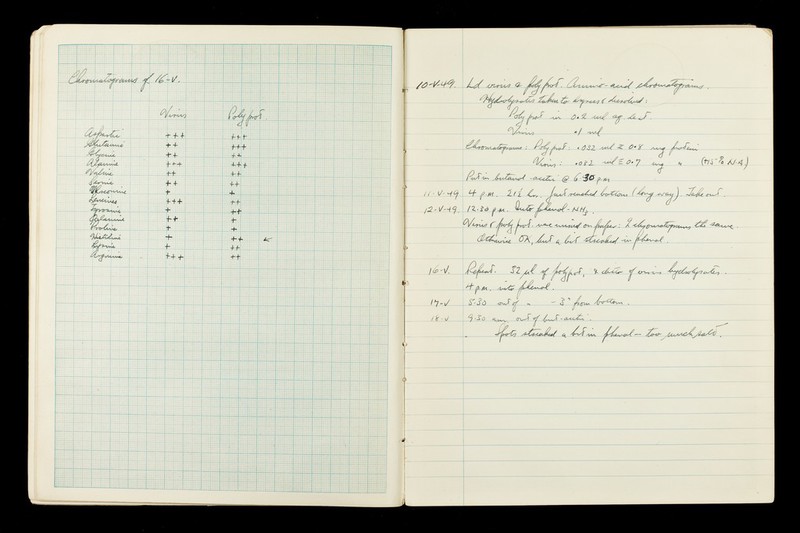 Chromatograms of 16-V.
Virus Polyprot.
Aspartic +++ +++
Glutamic ++ +++
Glycine ++ ++
Alanine +++ +++
Valine ++ ++
Serine ++ ++
Threonine + +
Leucines +++ ++
Tyrosine + ++
++
Proline + +
Histidine + ++
Lysine + ++
Arginine +++ ++
10-V-49. Hd virus & polyprot. Amino-acid chromatograms.
Hydrolysates taken to dryness & dissolved:
Polyprot in 0.2 ml aq. dest.
Virus .1 ml
Chromatograms: Polyprot: .032 ml ≡ 0.8 mg protein
Virus: .032 ml ≡ 0.7 mg "
Put in butanol-acetic @ 6.30 pm
11-V-49. 4 pm. 21½ hr. Just reached bottom (long way). Take out.
12-V-49. 12.30 pm. Into phenol-NH₃.
Virus & polyprot. were mixed on paper: 2 chromatograms the same.
Otherwise OK, but a bit streaked in phenol.
16-V. Repeat. 32 µl of polyprot, & ditto of virus hydrolysates.
4 pm. into phenol.
17-V 5.30 out of " - 3" from bottom.
18-V 9.30 am. out of but-acetic.
Spots streaked a bit in phenol - too much salt.